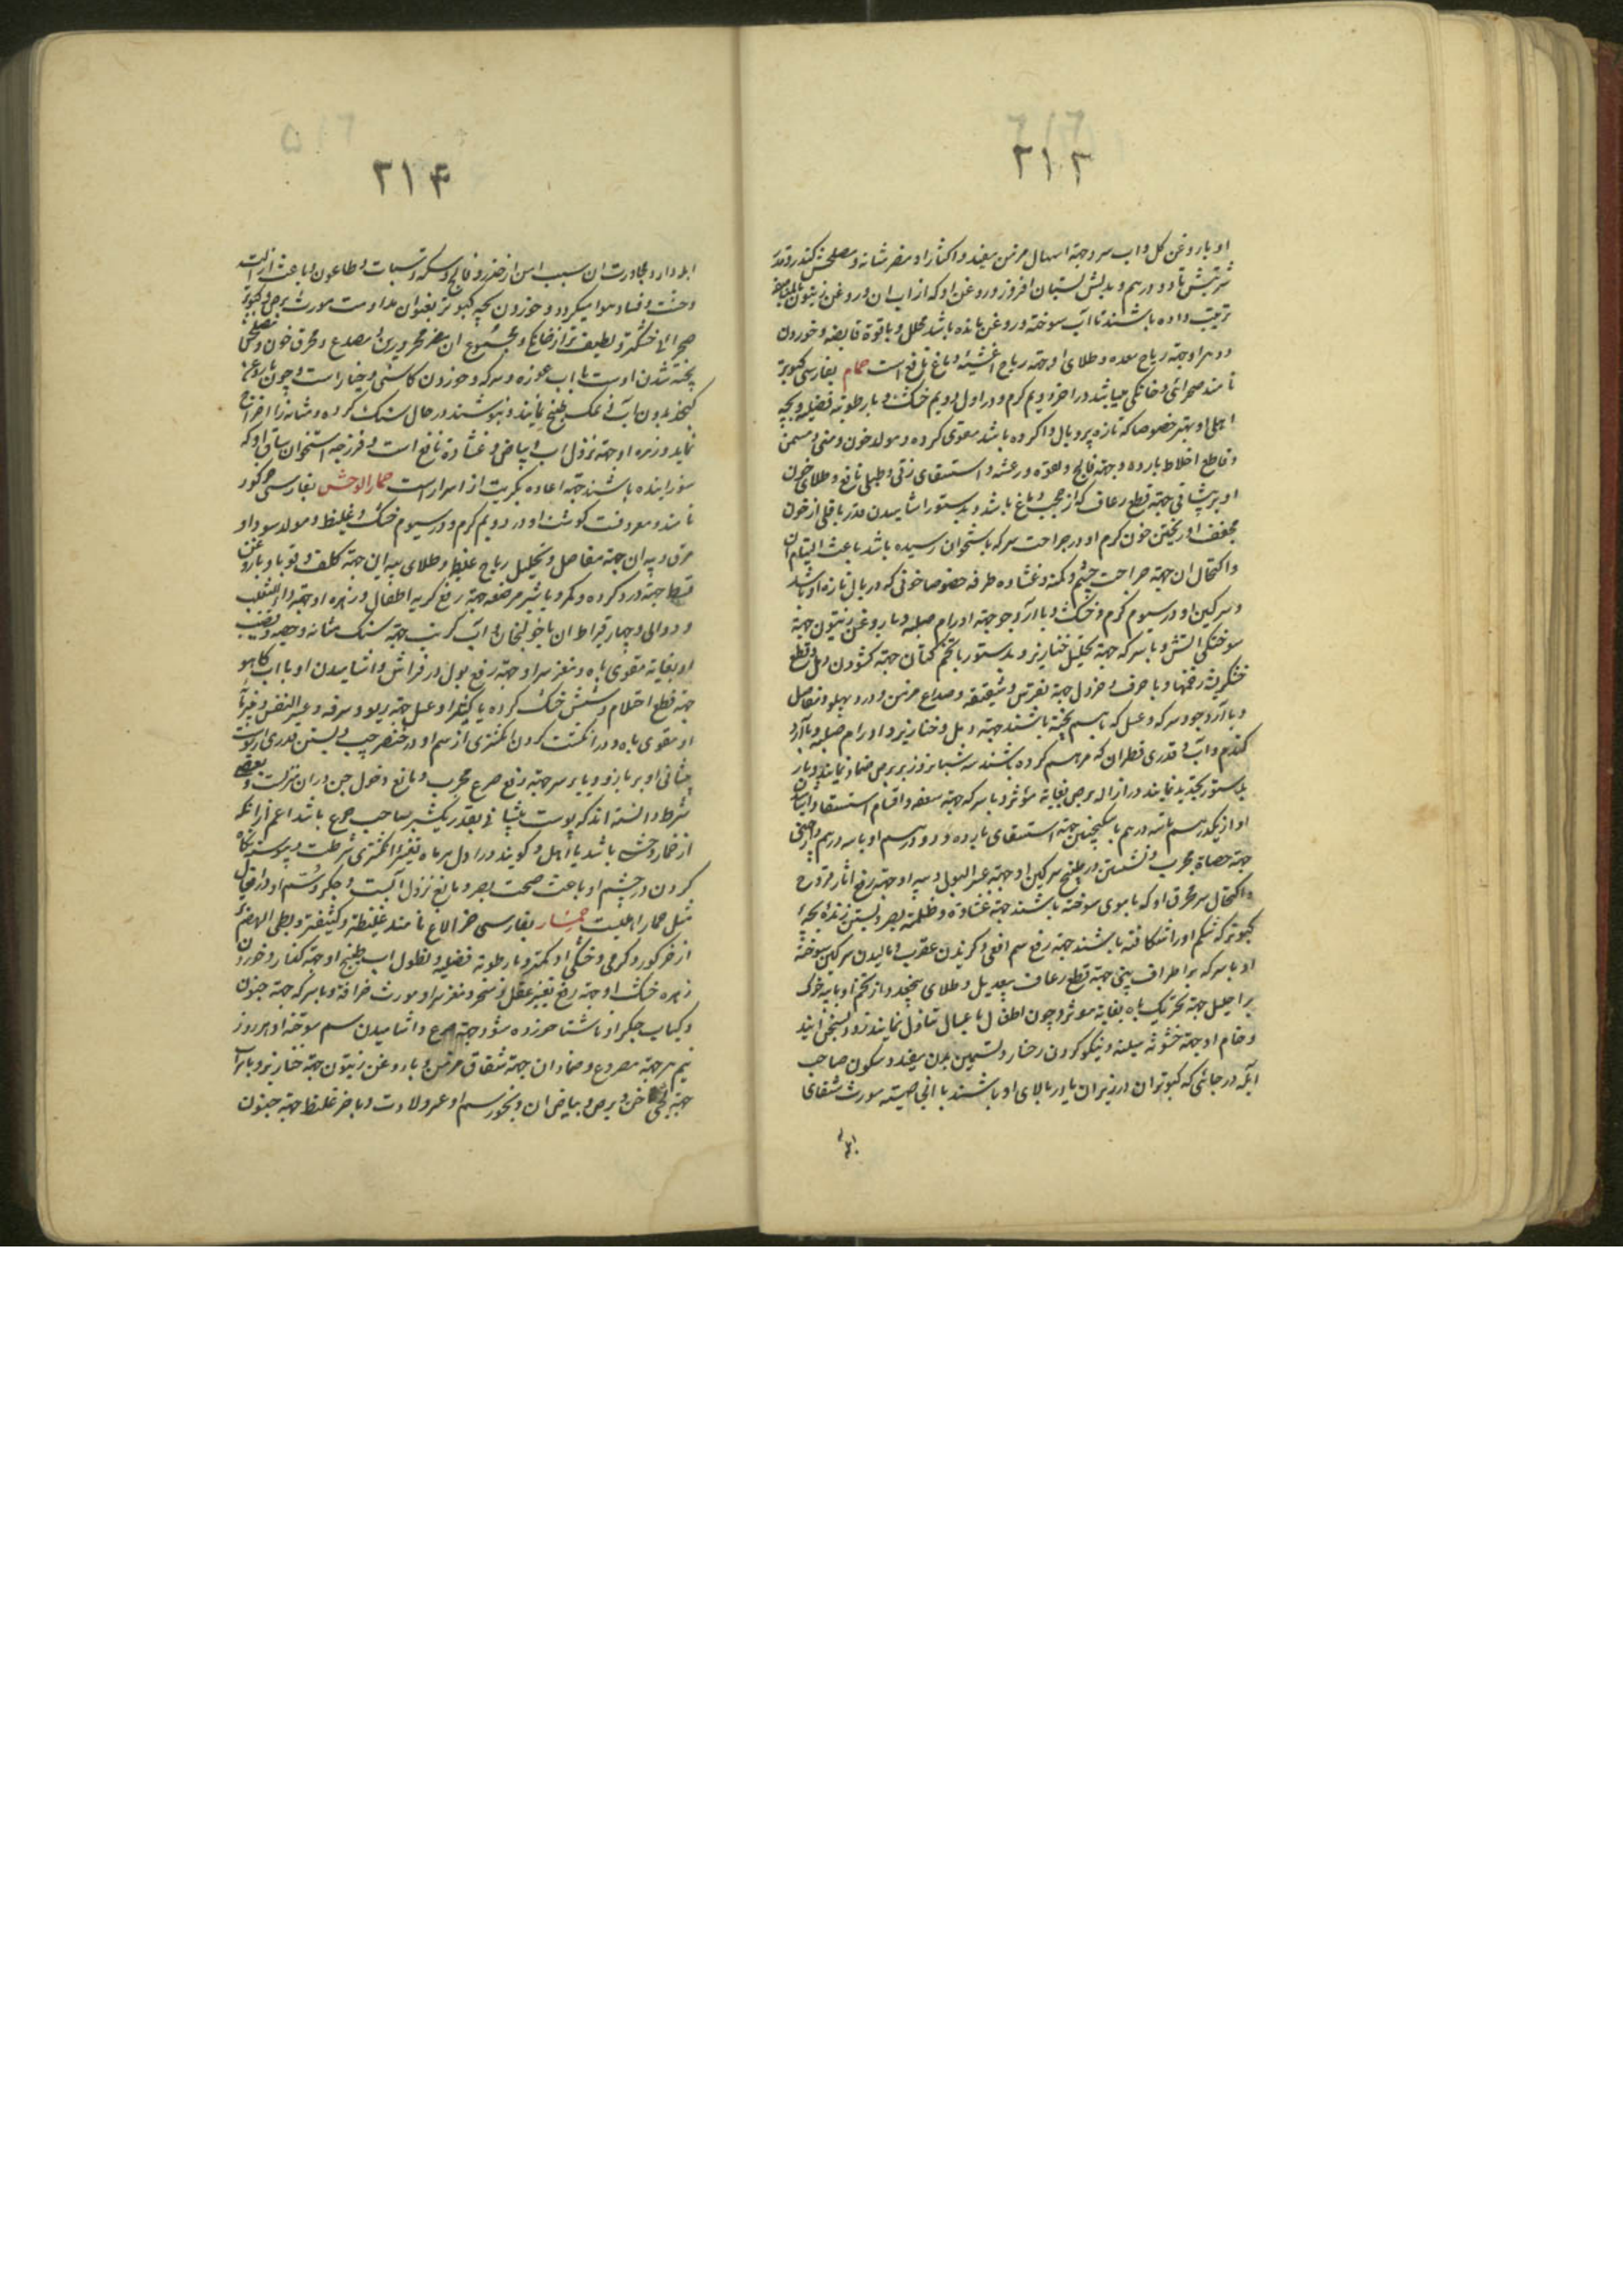 ۳۱۳
او با روغن کل و اب سرد جهة اسهال مزمن مفید و اکثار او مضر مثانه و مصلحش کندر و قدر
شربتش تا دو درهم و بدلش و روغن او که از اب ان و روغن زیتون
ترتیب داده باشند تا آب سوخته و روغن مانده باشد محلل و با قوة قابضه و خوردن
و دهن او جهة ریاح معده و طلای او جهة ریاح نافع است حمام بفارسی کبوتر
نامند صحرائی و خانکی میباشد در اخر دویم کرم و در اول دویم خشک و با رطوبة فضلیه و بچه
اهلی او بهتر خصوصا که تازه پر و بال وا کرده باشد مقوی کرده و مولد خون و منی و مسمن
و قاطع اخلاط بارده و جهة فالج و لقوه و رعشه و استسقای زقی و طبلی نافع و طلای خون
او بر پیشانی جهة قطع رعاف که از حجب دماغ باشد و بدستور اشامیدن قدر باقلی از خون
مجفف او و ریختن خون کرم او در جراحت سر که باستخوان رسیده باشد باعث التیام ان
و اکتحال ان جهة جراحت چشم و کمنه و غشاوه و طرفه خصوصا خونی که در بال تازه او باشد
و سرکین او در سیوم کرم و خشک و با ارد جو جهة اورام صلبه و با روغن زیتون جهة
سوختکی اتش و با سرکه جهة تحلیل خنازیر و بدستور با تخم کتان جهة کشودن دمل و قطع
خشکریشه زخمها و با حرف و خردل جهة نقرس و شقیقه و صداع مزمن و درد پهلو و مفاصل
و با آرد جو و سرکه و عسل که باهم پخته باشند جهة دمل و خنازیر و اورام صلبه و با آرد
کندم و آب و قدری قطران که مرهم کرده باشند سه شبانه روز بر برص ضماد نمایند و باز
بدستور تجدید نمایند در ازاله برص بغایة مؤثر و با سرکه جهة سعفه و اقسام استسقا و
او از یکدرهم تا سه درهم با سکنجبین جهة استسقای بارده و دو درهم او با سه درهم دارچینی
جهة حصاة مجرب و نشستن در طبیخ سرکین او جهة عسر البول و پیه او جهة رفع اثار قروح
و اکتحال سر محرق او که با موی سوخته باشند جهة غشاوة و ظلمة بصر و بستن زنده بچه
کبوتر که شکم او را شکافته باشند جهة رفع سم افعی و کزیدن عقرب و مالیدن سرکین سوخته
او با سرکه بر اطراف بینی جهة قطع رعاف بیعدیل و طلای پنجدرم از تخم او با پیه خوک
بر احلیل جهة تحریک باه بغایة موثر و چون اطفال با عسل تناول نمایند زود بسخن آیند
و خام او جهة خشونة سینه و نیکو کردن رخسار و تسمین بدن مفید و سکون صاحب
ابله در جائی که کبوتران در زیر ان یا در بالای او باشند بالخاصیته مورث شفای
۳۱۴
ابله دار و مجاورت ان سبب امن از خدر و فالج و سکته و سبات و طاعون و باعث ازاله
وحشت و فساد هوا میکردد و خوردن بچه کبوتر بعنوان مداومت مورث برص و کبوتر
صحرائی خشکتر و لطیف تر از خانکی و مجموع ان مضر محرورین و مصدع و محرق خون و مصلحش
پخته شدن اوست با اب غوره و سرکه و خوردن کاسنی و خیار است و چون با روغن
کنجد بدون آب و نمک طبخ نمایند و بنوشند در حال سنک کرده و مثانه را اخراج
نماید و زهره او جهة نزول اب و بیاض و غشاوة نافع است و فرزجه استخوان ساق او که
سوزانیده باشند جهة اعاده بکریت از اسرار است حمار الوحش بفارسی خر کور
نامند و معروفست کوشت او در دویم کرم و در سیوم خشک و غلیظ و مولد سودا و
مرق و پیه ان جهة مفاصل و تحلیل ریاح غلیظ و طلای پیه این جهة کلف و قوبا و با روغن
قسط جهة درد کرده و کمر و با شیر مرضعه جهة رفع کریه اطفال و زهره او جهة داء الثعلب
و دوالی و چهار قیراط ان با خولنجان و آب کرفس جهة سنک مثانه و خصیه و قضیب
او بغایة مقوی باه و مغز سر او جهة رفع بول در فراش و اشامیدن او با اب کاهو
جهة قطع احتلام و شش خشک کرده با عسل جهة ربو و سرفه و عسر النفس و
او مقوی باه و در انکشت کردن انکشتری از سم او در خنصر چپ و بستن قدری از پوست
پیشانی او بر بازو و یا بر سر جهة رفع صرع مجرب و مانع دخول جن در ان منزلست و بعضی
شرط دانسته اند که پوست پیشانی بقدر یکشبر صاحب صرع باشد اعم از انکه
از حمار وحش باشد یا اهلی و کویند در اول هر ماه تغییر انکشتری شرطست و پیوسته نکاه
کردن در چشم او باعث صحت بصر و مانع نزول آبست و جکر و سم او در افعال
مثل حمار اهلیست حمار بفارسی خر الاغ نامند غلیظتر و کثیفتر و بطی الهضم
از خر کور و کرمی و خشکی او کمتر و با رطوبة فضلیه و نطول اب طبخ او جهة کزاز و خوردن
زهره خشک او جهة رفع تغییر عقل و سحر و مغز سر او مورث خرافة و با سرکه جهة جنون
و کباب جکر او ناشتا خورده شود جهة صرع و اشامیدن سم سوخته او هر روز
نیم درهم جهة مصروع و ضماد ان جهة شقاق مزمن و با روغن زیتون جهة خنازیر و
جهة ناخن و برص و بیاض ان و بخور سم او عسر ولادت و باخر غلیظ جهة جنون